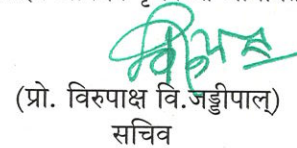 (प्रो. विरुपाक्ष वि.जड्डीपाल्)
सचिव